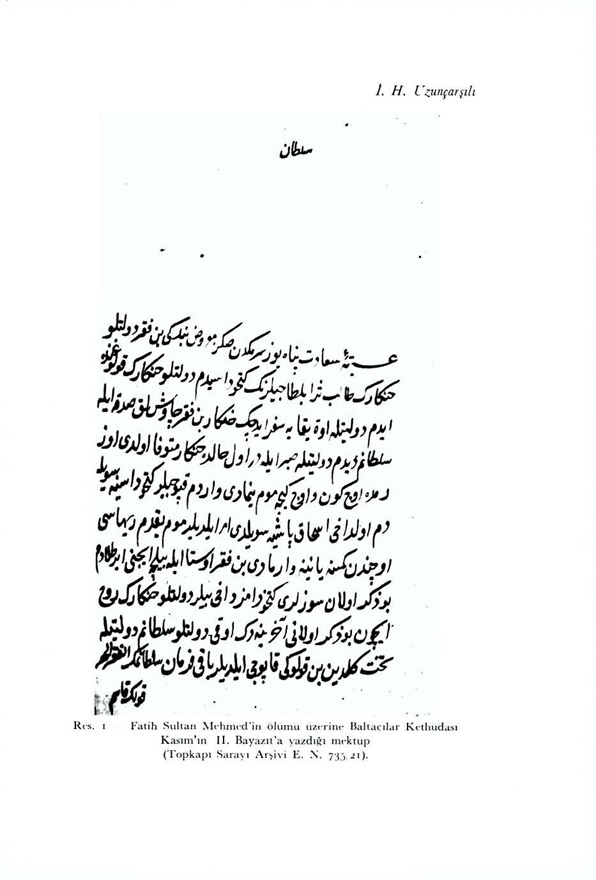 İ. H. Uzunçarşılı
سلطان
عتبهٔ سعادت پناه یوزسرمکدن صکره معروض بندکی بن فقر دولتلو
خنکارک بلطاجیلرنک کتخداسیدم دولتلو خنکارک قوللوغنده
ایدم دولتیله سفر ایدیجک خنکار بن فقره چاوشلق صدقه ایله
سلطانم دیدم دولتیله صبر ایله در اول حالده خنکار متوفا اولدی اوز
اوج کون واوج کیجه موم ینمادی واردم قپوجیلر کتخداسنه سویله
دم اولدخی اسحاق باشایه سویلدی امر ایلدیلر موم یقدم
اوجندن کمسنه یاننه وارمادی بن فقر اوستا ایله
بو ذکر اولان سوزلری کتخدامز دخی بیلر دولتلو خنکارک روح
ایچون بو ذکر اولانی آخرینه دک اوقی دولتلو سلطانم دولتیله
تخته کلدین بن قولوکی قاپوجی ایلدیلر باقی فرمان سلطانمک
قولک قاسم
Res. 1 Fatih Sultan Mehmed'in ölümü üzerine Baltacılar Kethudası
Kasım'ın II. Bayazıt'a yazdığı mektup
(Topkapı Sarayı Arşivi E. N. 735, 21).